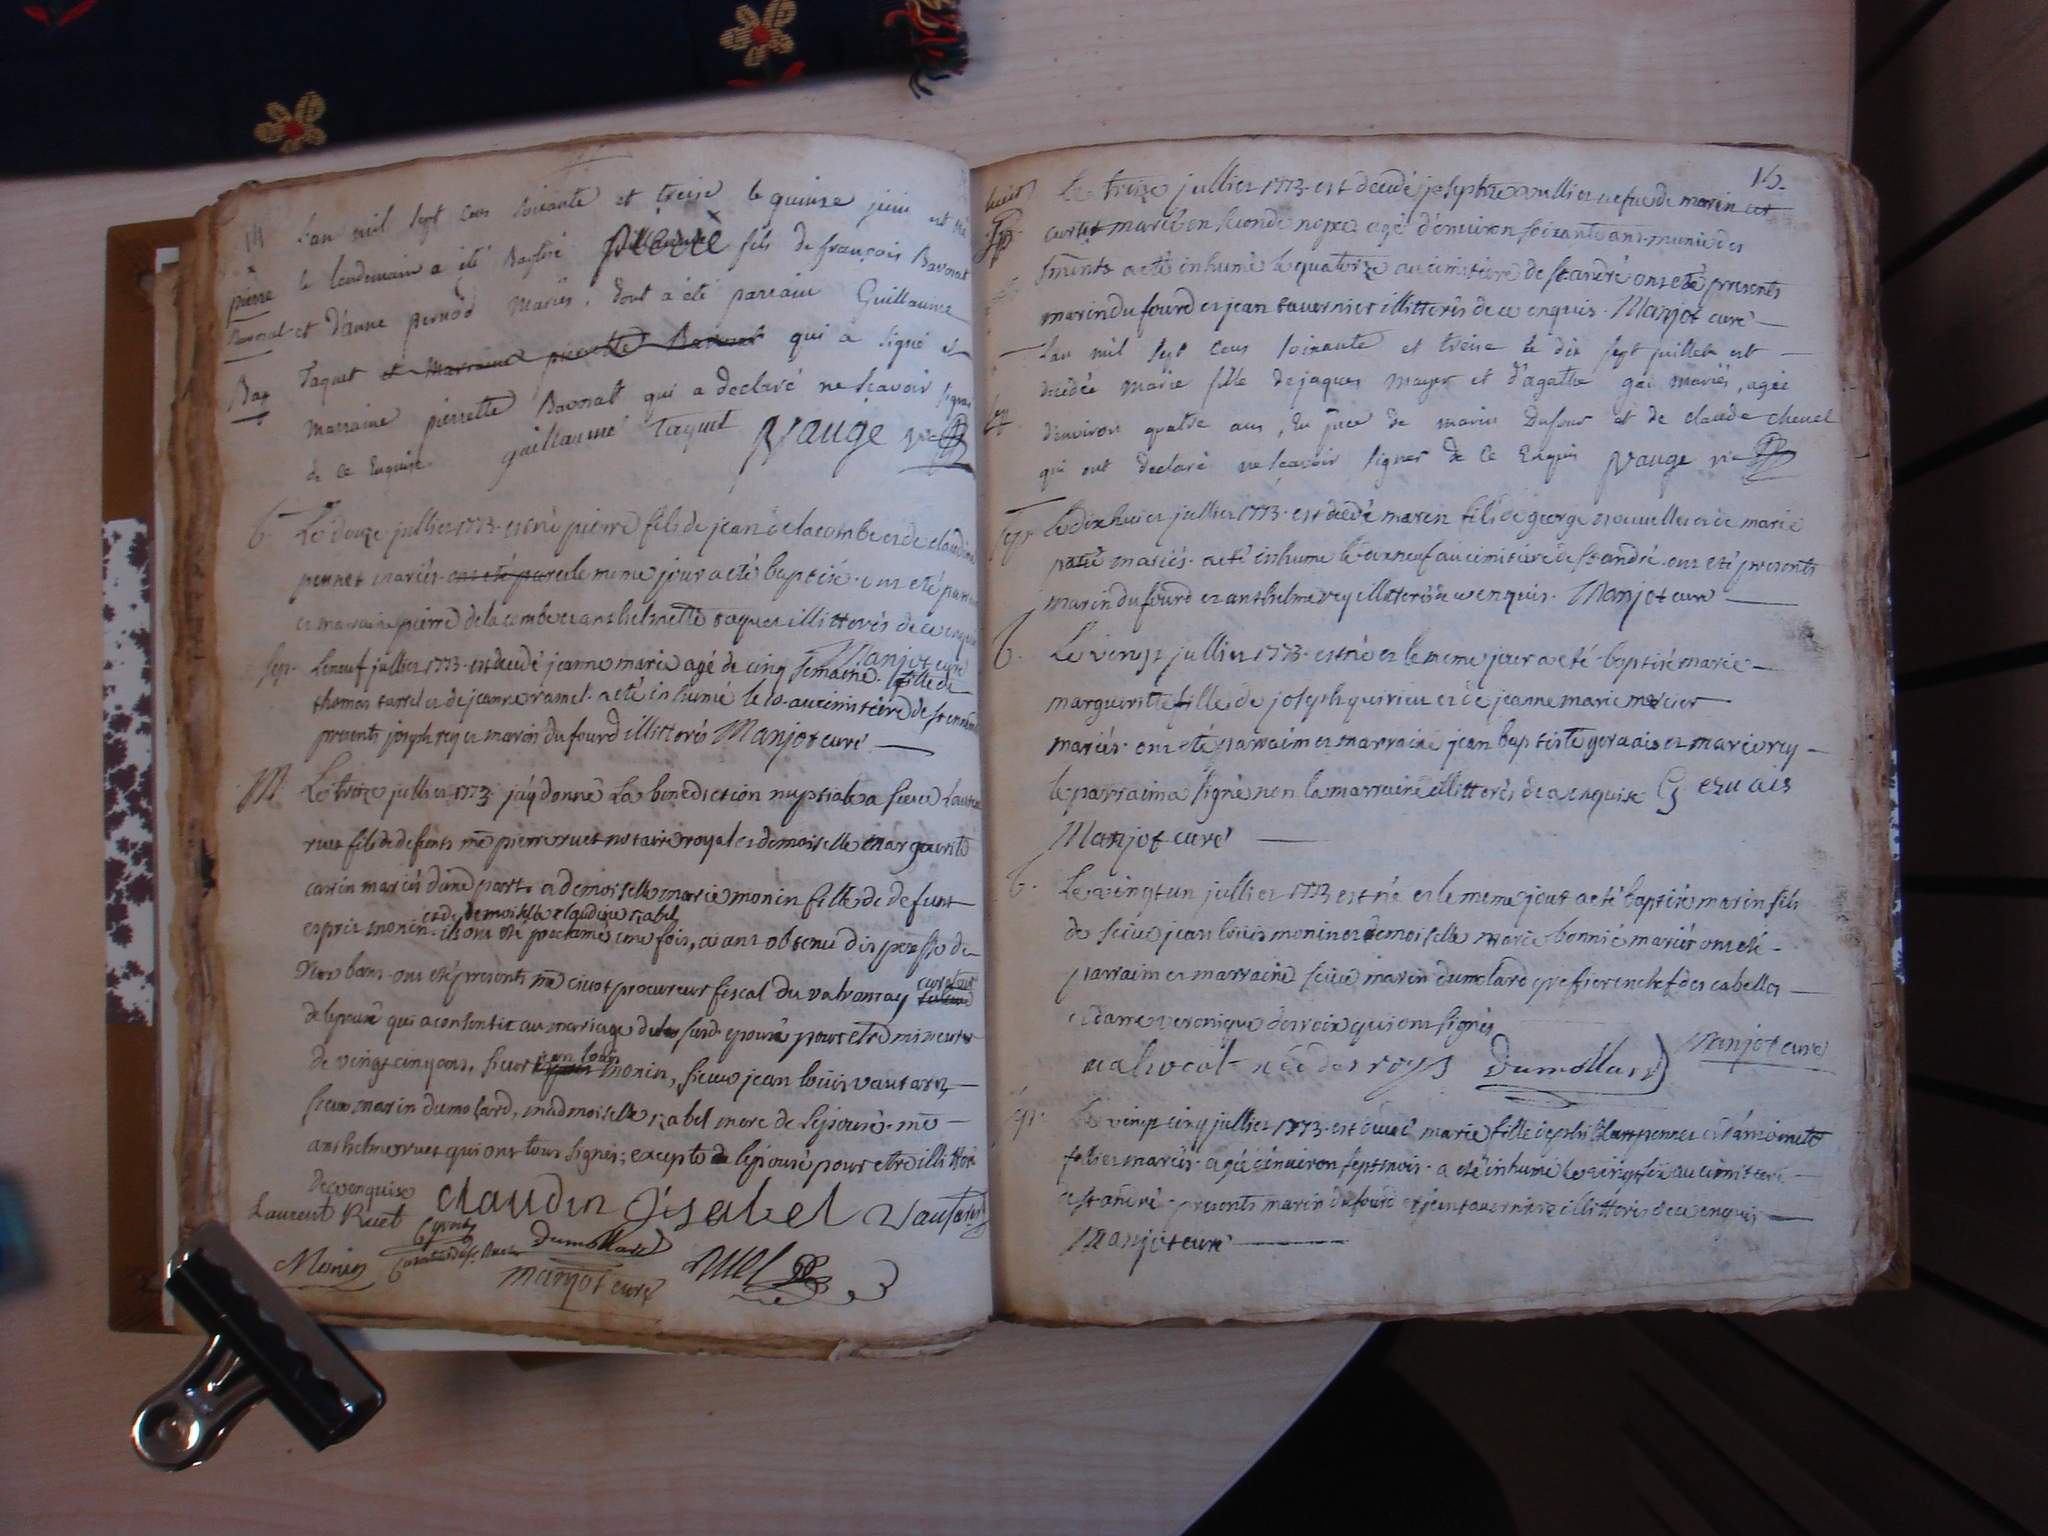 L'an mil sept cens soixante et treise le quinse juin est né
le lendemain a été Baptisé pierre fils de françois Bavosat
pierre
Bavosat
et d'anne pernod Mariés, dont a été parrain Guillaume
Bap
Taquet et Marraine pierrette Bavosat qui a signé et
marraine pierrette Bavosat qui a declaré ne sçavoir signer
de ce Enquise guillaume Taquet Vauge vic
b. Le douze jullier 1773. est né pierre fils de jean delacombe et de claudine
pennet mariés. ont été par et le meme jour a eté baptisé. ont eté parrain
et marraine pierre delacombe et anthelmette taquet illitterés de ce enquis
Manjot curé
sep. Le neuf jullier 1773. est decedé jeanne marie agé de cinq semaine. fille de
thomas tarrel et de jeanne ramel. a eté inhumé le 10. au cimitiére de st andré
presents joseph rey et marin dufourd illitterés Manjot curé
M Le treize jullier 1773. jay donné La benediction nuptiale a sieur Laurent
ruet fils de defunts me pierre ruet notaire royal et demoiselle marguerite
carrin mariés dune part. et demoiselle marie monin fille de defunt
et de demoiselle claudine isabel
esprit monin. ils ont eté proclamé une fois, aiant obtenu dispense de
deux bans. ont eté presents me civot procureur fiscal du valromay curateur
de lepouse qui a consenti au mariage dud. epouse pour etre mineure
de vingt cinq ans, sieur jean louis monin, sieur jean louis vautaret
sieur marin dumolard, madmoiselle isabel mere de lepouse. me
anthelme ruet qui ont tous signés; excepté lepouse pour etre illitteré
de ce enquise claudin isabel Vautaret
Laurent Ruet
Monin dumollard ruet
Manjot curé
15.
Le treize jullier 1773. est decedé josephte veufve de marin
mariée en seconde nopce agé d'environ soixante ans. munie des
sments a eté inhumé le quatorze au cimitiére de st andré ont eté presents
marin dufourd et jean tavernier illitterés de ce enquis. Manjot curé
L'an mil sept cens soixante et treise le dix sept juillet est
decedée marie fille de jaques mayer et d'agathe gai mariés, agée
d'environ quatre ans, En pnce de marin Dufour et de claude chevel
qui ont declaré ne sçavoir signer de ce Enquis Vauge vic
sep. Le dix huit jullier 1773. est decedé marin fils de george et de marie
mariés. a eté inhumé le dix neuf au cimitiére de st andré. ont eté presents
marin dufourd et anthelme rey illitterés de ce enquis. Manjot curé
b. Le vingt jullier 1773. est né et le meme jour a eté baptisé marie
marguerite fille de joseph quirieu et de jeanne marie mercier
mariés. ont eté parrain et marraine jean baptiste gervais et marie rey
le parrain a signé non la marraine illitterés de ce enquise Gervais
Manjot curé
b. Le vingt un jullier 1773 est né et le meme jour a eté baptisé marin fils
de sieur jean louis monin et demoiselle marie bonnie mariés ont eté
parrain et marraine sieur marin dumolard greffier en chef des gabelles
et dame veronique desroix qui ont signés
née desroys Dumollard Manjot curé
sep. Le vingt cinq jullier 1773. est decedé marie fille de pennet et
mariés. agée d'environ sept mois. a eté inhumé le vingt six au cimitiere
de st andré. presents marin dufourd et jean tavernier illitterés de ce enquis
Manjot curé